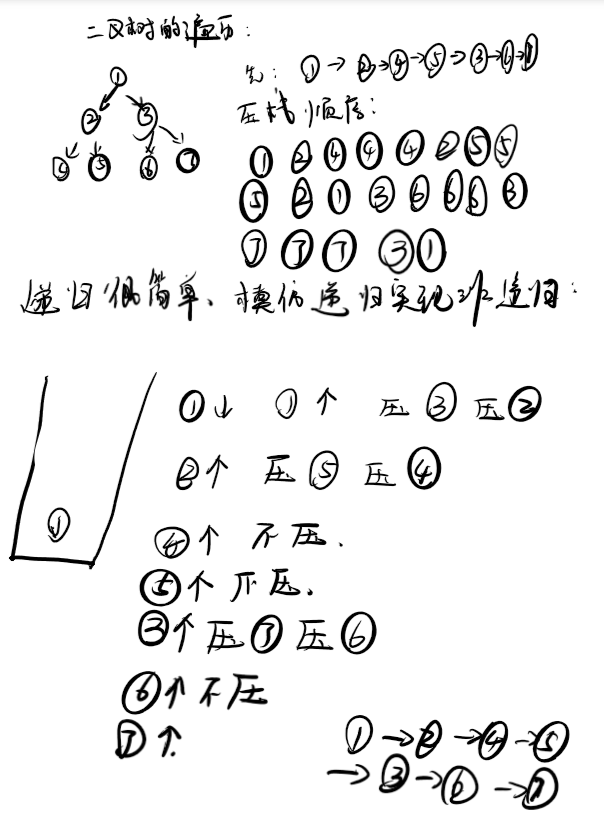 二叉树的遍历:
先: ① → ② → ④ → ⑤ → ③ → ⑥ → ⑦
①
② ③
④ ⑤ ⑥ ⑦
压栈顺序:
① ② ④ ④ ④ ② ⑤ ⑤
⑤ ② ① ③ ⑥ ⑥ ⑥ ③
⑦ ⑦ ⑦ ③ ①
递归很简单、模仿递归实现非递归:
①↓ ①↑ 压③ 压②
②↑ 压⑤ 压④
①
④↑ 不压.
⑤↑ 不压.
③↑ 压⑦ 压⑥
⑥↑ 不压
⑦↑.
① → ② → ④ → ⑤
→ ③ → ⑥ → ⑦